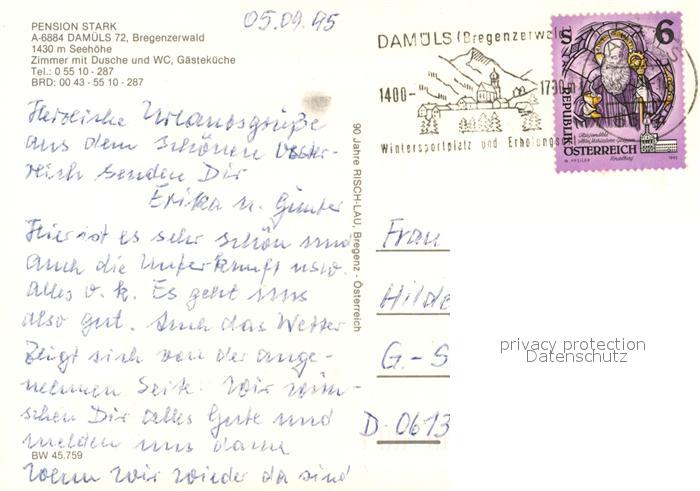 05.09.95
PENSION STARK
A-6884 DAMÜLS 72, Bregenzerwald
1430 m Seehöhe
Zimmer mit Dusche und WC, Gästeküche
Tel.: 0 55 10 - 287
BRD: 00 43 - 55 10 - 287
Herzliche Urlaubsgrüße
aus dem schönen Öster-
reich senden Dir
Erika u. Günter
Hier ist es sehr schön und
auch die Unterkunft usw.
alles o. k. Es geht uns
also gut. Auch das Wetter
zeigt sich von der ange-
nehmen Seite. Wir wün-
schen Dir alles Gute und
melden uns dann
wenn wir wieder da sind
BW 45.759
90 Jahre RISCH-LAU, Bregenz - Österreich
DAMÜLS (Bregenzerwald
1400-
Wintersportplatz und Erholungs
6
REPUBLIK
ÖSTERREICH
Frau
Hilde
G.-S
D-0613
privacy protection
Datenschutz